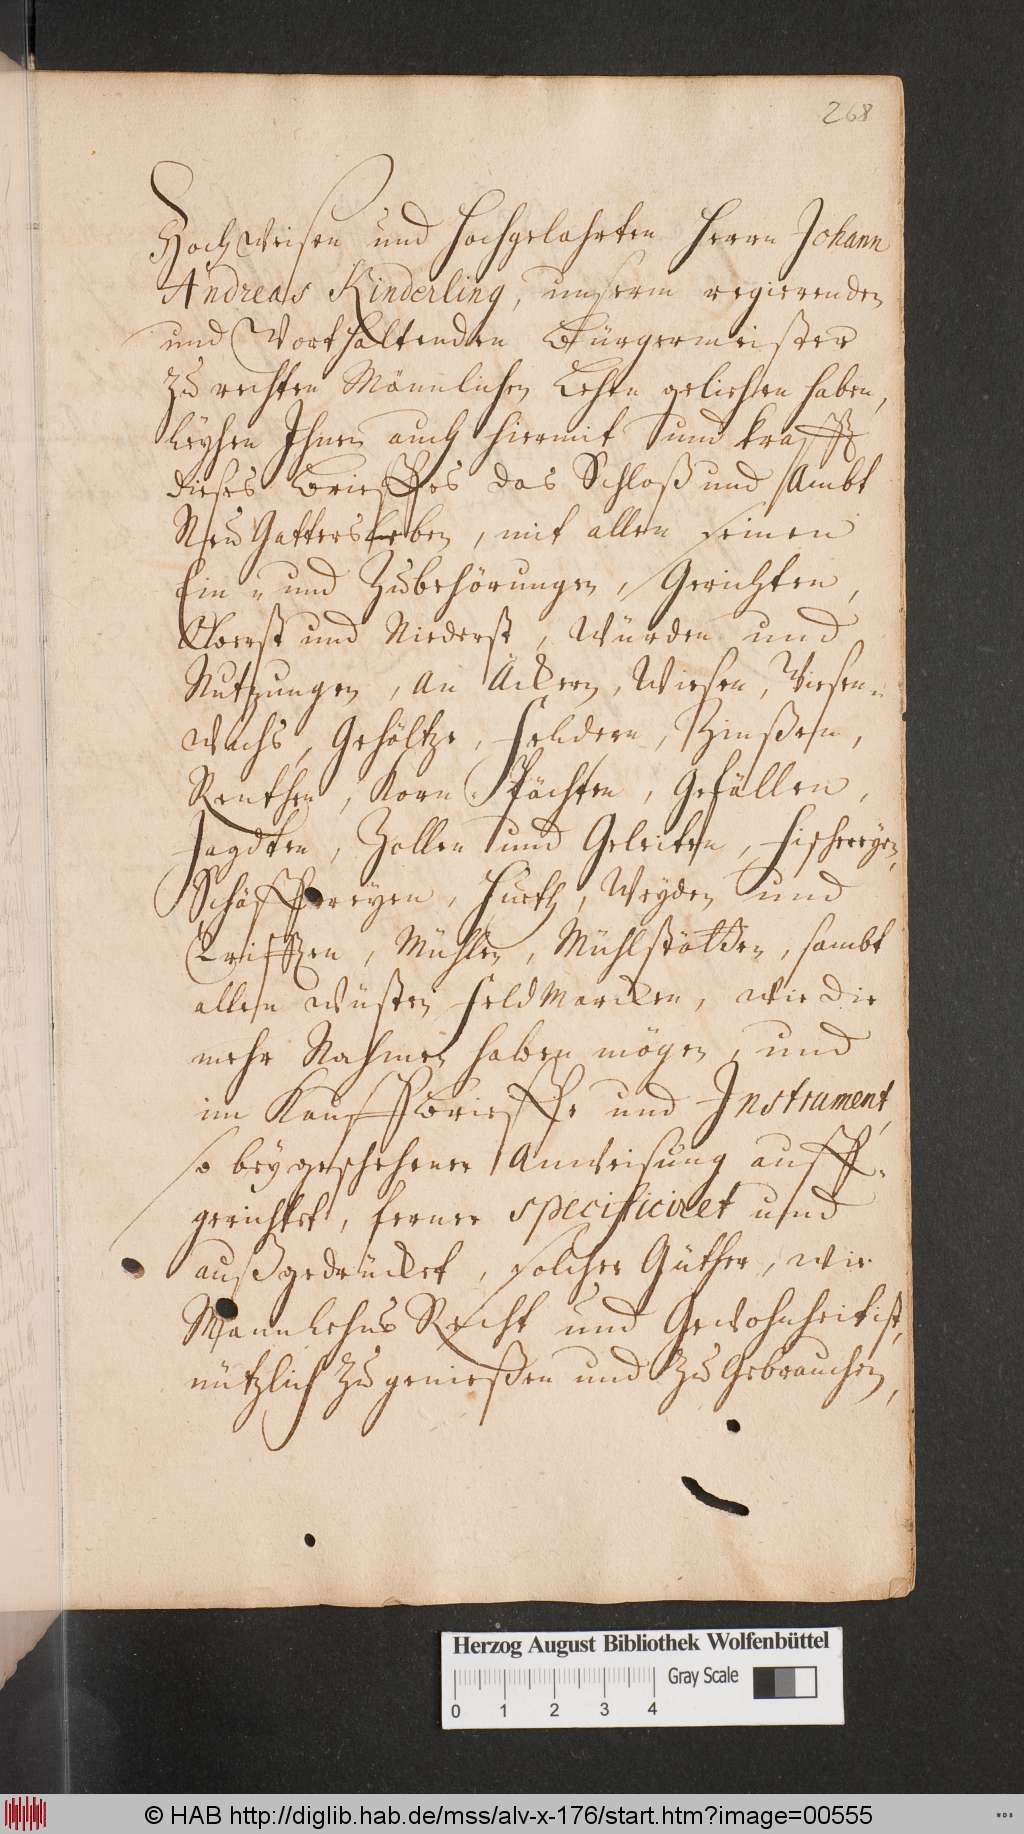 268
Hochweisen und Hochgelahrten Herrn Johann
Andreas Kinderling, unserm regierenden
und Vorthaltenden Bürgermeister
zu rechten Männlichen Lehen geliehen haben,
Leyhen Ihnen auch hiermit und krafft
dieses Brieffes das Schloß und Ambt
Neu Gattersleben, mit allen seinen
Ein- und Zubehörungen, Gerichten,
Oberst und Niederst, Würden und
Nutzungen, an Äckern, Wiesen, Wiesen-
wachs, Gehöltze, Feldern, Zinßen,
Renthen, Korn Pächten, Gefällen,
Jagdten, Zollen und Geleiten, Fischereyen,
Schäffereyen, Hueth, Weyden und
Trifften, Mühlen, Mühlstätten, sambt
allen wüsten Feld Marcken, wie die
mehr Nahmen haben mögen, und
im Kauffbrieffe und Instrument,
so bey geschehener Anweisung auff-
gerichtet, ferner specificiret und
außgedrücket, solcher Güther, wie
Mannlehns Recht und Gewohnheit ist,
nützlich zu genießen und zu gebrauchen,
Herzog August Bibliothek Wolfenbüttel
0 1 2 3 4 Gray Scale
© HAB http://diglib.hab.de/mss/alv-x-176/start.htm?image=00555